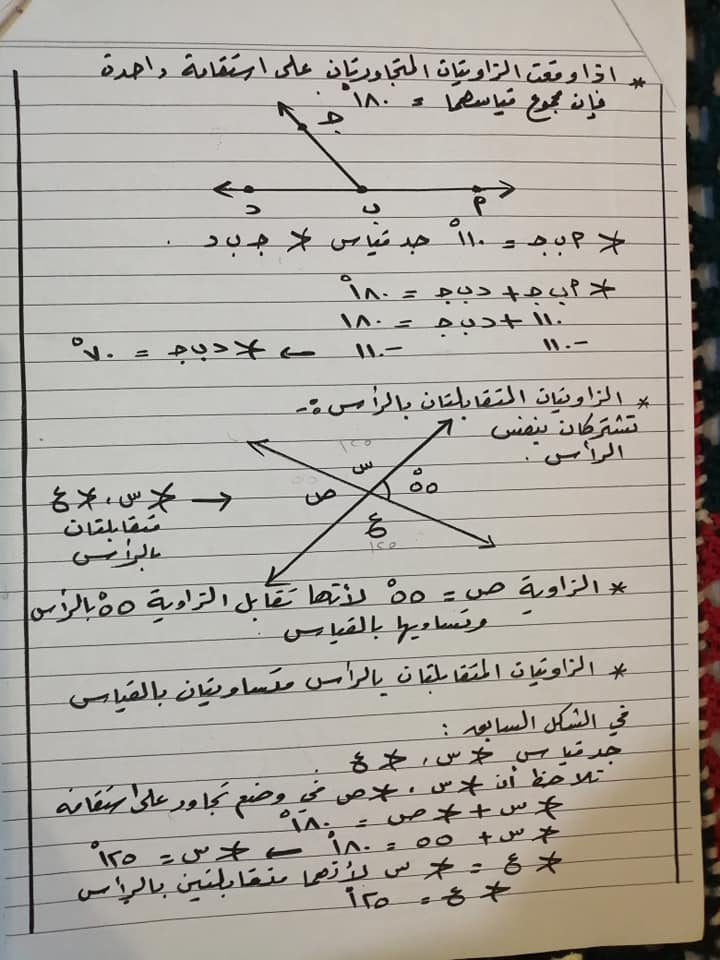 * اذا وقعت الزاويتان المتجاورتان على استقامة واحدة
فإن مجموع قياسهما = ١٨٠°
جـ
د ب أ
∢ أ ب جـ = ١١٠° جد قياس ∢ جـ ب د .
∢ أ ب جـ + د ب جـ = ١٨٠°
١١٠ + د ب جـ = ١٨٠
-١١٠ -١١٠ ← ∢ د ب جـ = ٧٠°
* الزاويتان المتقابلتان بالرأس :-
تشتركان بنفس
الرأس .
١٢٥
س
٥٥
ص ٥٥°
ع
١٢٥
∢ س ، ∢ ع ←
متقابلتان
بالرأس
* الزاوية ص = ٥٥° لأنها تقابل الزاوية ٥٥° بالرأس
وتساويها بالقياس .
* الزاويتان المتقابلتان بالرأس متساويتان بالقياس
في الشكل السابق :
جد قياس ∢ س ، ∢ ع
نلاحظ أن ∢ س ، ∢ ص في وضع تجاور على استقامة
∢ س + ∢ ص = ١٨٠°
∢ س + ٥٥ = ١٨٠° ← ∢ س = ١٢٥°
∢ ع = ∢ س لأنهما متقابلتين بالرأس
∢ ع = ١٢٥°